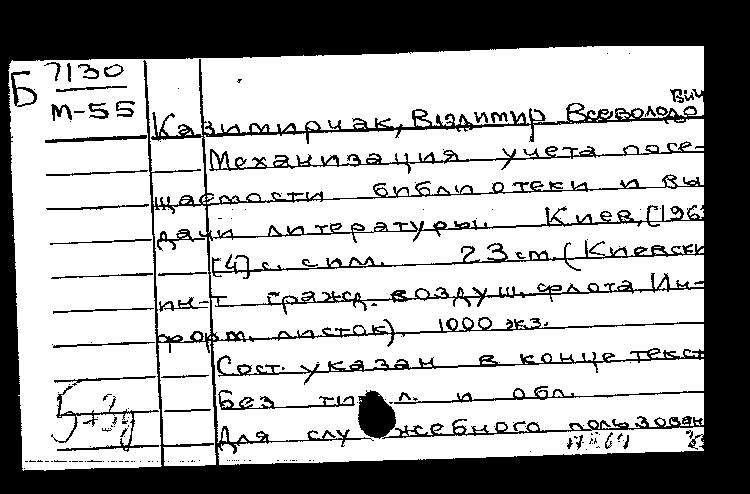 Б 7130
М-55
Казимирчак, Владимир Всеволодо
вич
Механизация учета посе-
щаемости библиотеки и вы
дачи литературы. Киев, [196
[4] с. с илл. 23 cm. (Киевски
ин-т гражд. воздуш. флота. Ин-
форм. листок). 1000 экз.
Сост. указан в конце текст
Без тит. л. и обл.
Для служебного пользован